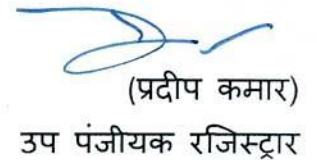 (प्रदीप कमार)
उप पंजीयक रजिस्ट्रार